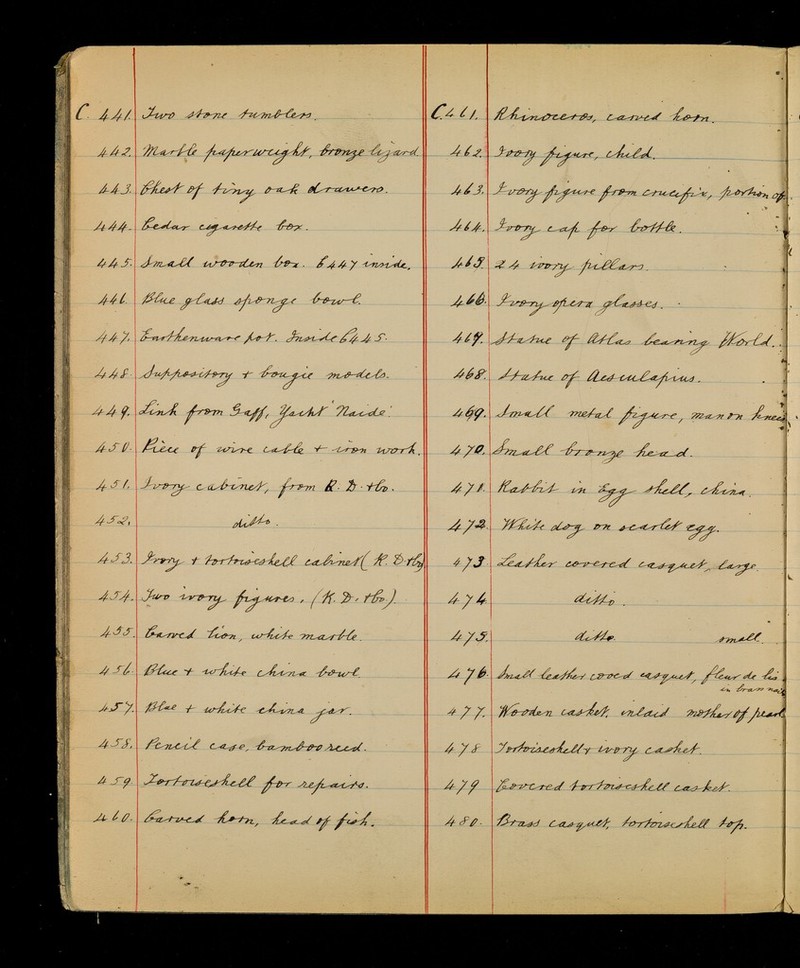 C 441. Two stone tumblers.
442. Marble paperweight, bronze lizard
443. Chest of tiny oak drawers.
444. Cedar cigarette box.
445. Small wooden box. C447 inside.
446. Blue glass sponge bowl.
447. Earthenware pot. Inside C445.
448. Suppository + bougie models.
449. Link from Gaff, Yacht 'Naide'
450. Piece of wire cable + iron work.
451. Ivory cabinet, from R. D. + Co.
452. ditto.
453. Ivory + tortoiseshell cabinet (R. D. + Co)
454. Two ivory figures. (R. D. + Co).
455. Carved lion, white marble.
456. Blue + white china bowl.
457. Blue + white china jar.
458. Pencil case, bamboo reed.
459. Tortoiseshell for repairs.
460. Carved horn, head of fish.
C.461. Rhinoceros, carved horn.
462. Ivory figure, child.
463. Ivory figure from crucifix, portion of
464. Ivory cap for bottle.
465. 24 ivory pillars.
466. Ivory opera glasses.
467. Statue of Atlas bearing World.
468. Statue of Aesculapius.
469. Small metal figure, man on knees
470. Small bronze head.
471. Rabbit in Egg shell, china.
472. White dog on scarlet egg.
473 Leather covered casquet, large.
474 ditto.
475. ditto small.
476. Small leather coved casquet, fleur de lis
in brass nails
477. Wooden casket, inlaid mother of pearl
478 Tortoiseshell + ivory casket.
479 Covered tortoiseshell casket.
480. Brass casquet, tortoiseshell top.